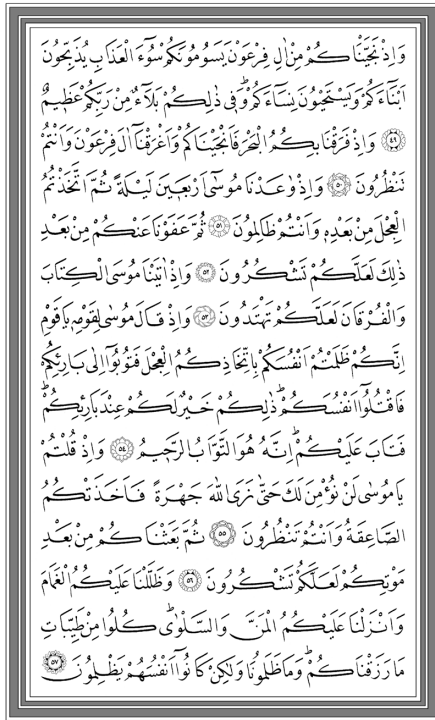 وَاِذْ نَجَّيْنَاكُمْ مِنْ اٰلِ فِرْعَوْنَ يَسُومُونَكُمْ سُوٓءَ الْعَذَابِ يُذَبِّحُونَ
اَبْنَٓاءَكُمْ وَيَسْتَحْيُونَ نِسَٓاءَكُمْۜ وَفٖي ذٰلِكُمْ بَلَٓاءٌ مِنْ رَبِّكُمْ عَظٖيمٌ
﴿٤٩﴾ وَاِذْ فَرَقْنَا بِكُمُ الْبَحْرَ فَاَنْجَيْنَاكُمْ وَاَغْرَقْنَٓا اٰلَ فِرْعَوْنَ وَاَنْتُمْ
تَنْظُرُونَ ﴿٥٠﴾ وَاِذْ وٰعَدْنَا مُوسٰٓى اَرْبَعٖينَ لَيْلَةً ثُمَّ اتَّخَذْتُمُ
الْعِجْلَ مِنْ بَعْدِهٖ وَاَنْتُمْ ظَالِمُونَ ﴿٥١﴾ ثُمَّ عَفَوْنَا عَنْكُمْ مِنْ بَعْدِ
ذٰلِكَ لَعَلَّكُمْ تَشْكُرُونَ ﴿٥٢﴾ وَاِذْ اٰتَيْنَا مُوسَى الْكِتَابَ
وَالْفُرْقَانَ لَعَلَّكُمْ تَهْتَدُونَ ﴿٥٣﴾ وَاِذْ قَالَ مُوسٰى لِقَوْمِهٖ يَا قَوْمِ
اِنَّكُمْ ظَلَمْتُمْ اَنْفُسَكُمْ بِاتِّخَاذِكُمُ الْعِجْلَ فَتُوبُٓوا اِلٰى بَارِئِكُمْ
فَاقْتُلُٓوا اَنْفُسَكُمْۜ ذٰلِكُمْ خَيْرٌ لَكُمْ عِنْدَ بَارِئِكُمْۜ
فَتَابَ عَلَيْكُمْۜ اِنَّهُ هُوَ التَّوَّابُ الرَّحٖيمُ ﴿٥٤﴾ وَاِذْ قُلْتُمْ
يَا مُوسٰى لَنْ نُؤْمِنَ لَكَ حَتّٰى نَرَى اللّٰهَ جَهْرَةً فَاَخَذَتْكُمُ
الصَّاعِقَةُ وَاَنْتُمْ تَنْظُرُونَ ﴿٥٥﴾ ثُمَّ بَعَثْنَاكُمْ مِنْ بَعْدِ
مَوْتِكُمْ لَعَلَّكُمْ تَشْكُرُونَ ﴿٥٦﴾ وَظَلَّلْنَا عَلَيْكُمُ الْغَمَامَ
وَاَنْزَلْنَا عَلَيْكُمُ الْمَنَّ وَالسَّلْوٰىۜ كُلُوا مِنْ طَيِّبَاتِ
مَا رَزَقْنَاكُمْۜ وَمَا ظَلَمُونَا وَلٰكِنْ كَانُٓوا اَنْفُسَهُمْ يَظْلِمُونَ ﴿٥٧﴾